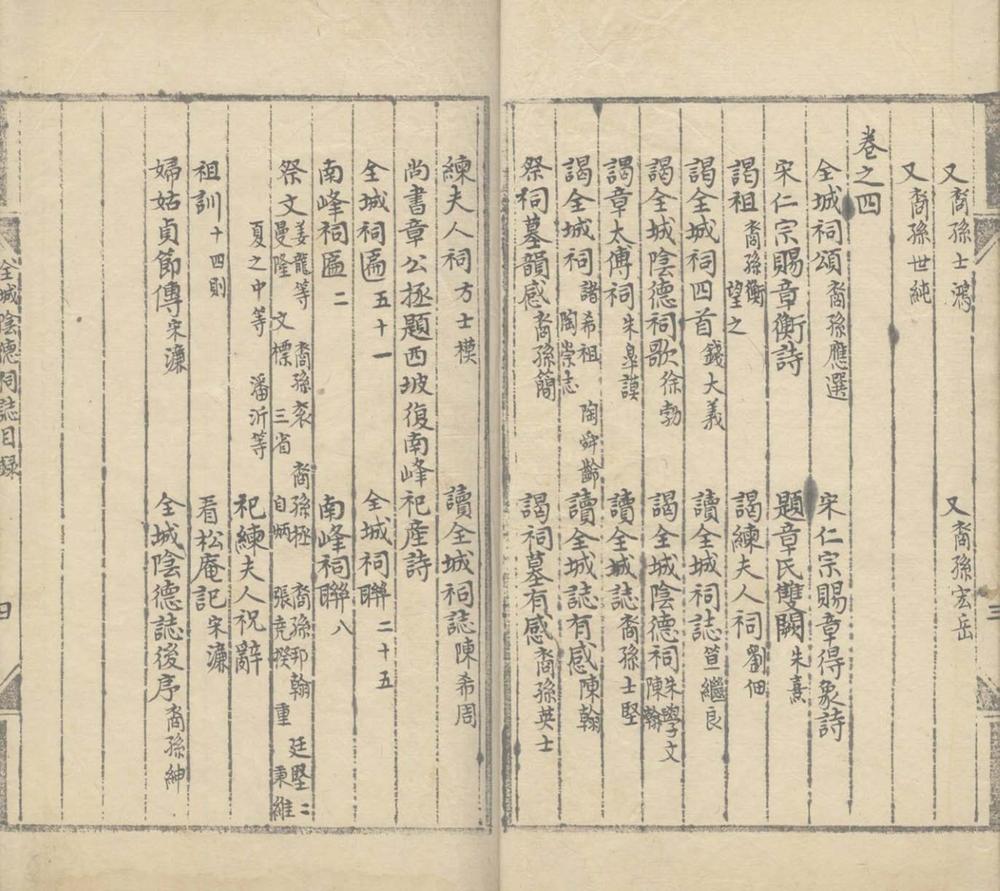 又 裔孫士鴻 又 裔孫宏岳
又 裔孫世純
卷之四
全城祠頌 裔孫應選 宋仁宗賜章得象詩
宋仁宗賜章衡詩 題章氏雙闕 朱熹
謁祖 裔孫衡 望之 謁練夫人祠 劉佃
謁全城祠四首 錢大義 讀全城祠誌 萱繼良
謁全城陰德祠歌 徐勃 謁全城陰德祠 朱學文 陳翰
謁章太傅祠 朱臯謨 讀全城誌 裔孫士堅
謁全城祠 諸希祖 陶崇志 陶舜齡 讀全城誌有感 陳翰
祭祠墓韻感 裔孫簡 謁祠墓有感 裔孫英士
練夫人祠 方士模 讀全城祠誌 陳希周
尚書章公拯題西坡復南峰祀産詩
全城祠匾 五十一 全城祠聯 二十五
南峰祠匾 二 南峰祠聯 八
祭文 姜龍等 裔孫袞 裔孫極 裔孫邦翰 廷堅 曼隆 文標 三省 自炳 張竞揆 重 秉維
夏之中等 潘沂等 祀練夫人祝辭
祖訓 十四則 看松庵記 宋濂
婦姑貞節傳 宋濂 全城陰德誌後序 裔孫紳
全城陰德祠誌目録
三
四